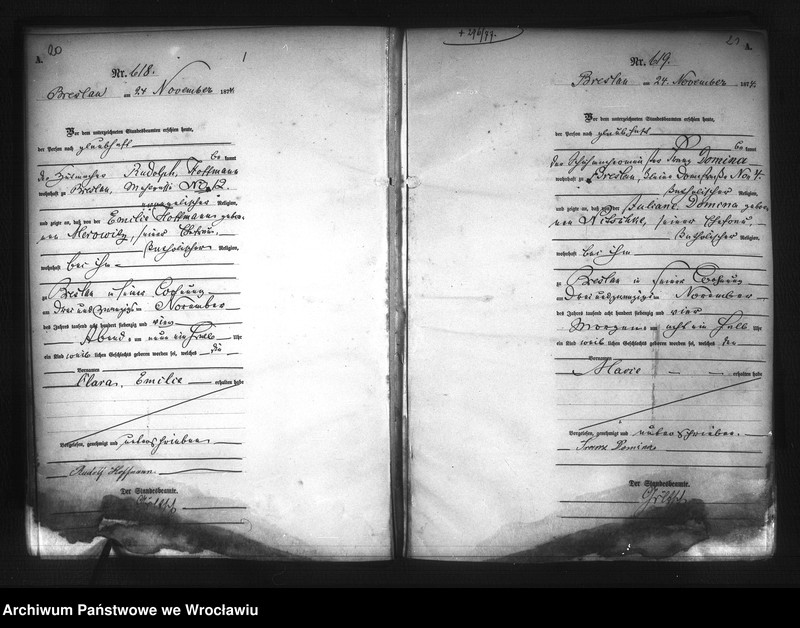 A. 20
Nr. 618.
Breslau am 24 November 1874.
Vor dem unterzeichneten Standesbeamten erschien heute,
der Person nach glaubhaft
be kannt
Rudolph Hoffmann
wohnhaft zu Breslau, No 12.
evangelischer Religion,
und zeigte an, daß von der Emilie Hoffmann gebor-
nen seiner Ehefrau,
katholischer Religion,
wohnhaft bei ihm
zu Breslau in seiner Wohnung
am drei und zwanzigsten November
des Jahres tausend acht hundert siebenzig und vier
Abends um neun ein halb Uhr
ein Kind weib lichen Geschlechts geboren worden sei, welches die
Vornamen
Clara, Emilie erhalten habe
Vorgelesen, genehmigt und unterschrieben
Rudolf Hoffmann
Der Standesbeamte.
+ 296/99.
21 A.
Nr. 619.
Breslau am 24 November 1874.
Vor dem unterzeichneten Standesbeamten erschien heute,
der Person nach glaubhaft
be kannt
der Franz Domina
wohnhaft zu Breslau, kleine Domstraße No 4.
katholischer Religion,
und zeigte an, daß von der Juliane Domina gebor-
nen Nitschke, seiner Ehefrau,
katholischer Religion,
wohnhaft bei ihm
zu Breslau in seiner Wohnung
am drei und zwanzigsten November
des Jahres tausend acht hundert siebenzig und vier
Morgens um acht ein halb Uhr
ein Kind weib lichen Geschlechts geboren worden sei, welches den
Vornamen
Marie erhalten habe
Vorgelesen, genehmigt und unterschrieben.
Franz Domina
Der Standesbeamte.
Archiwum Państwowe we Wrocławiu